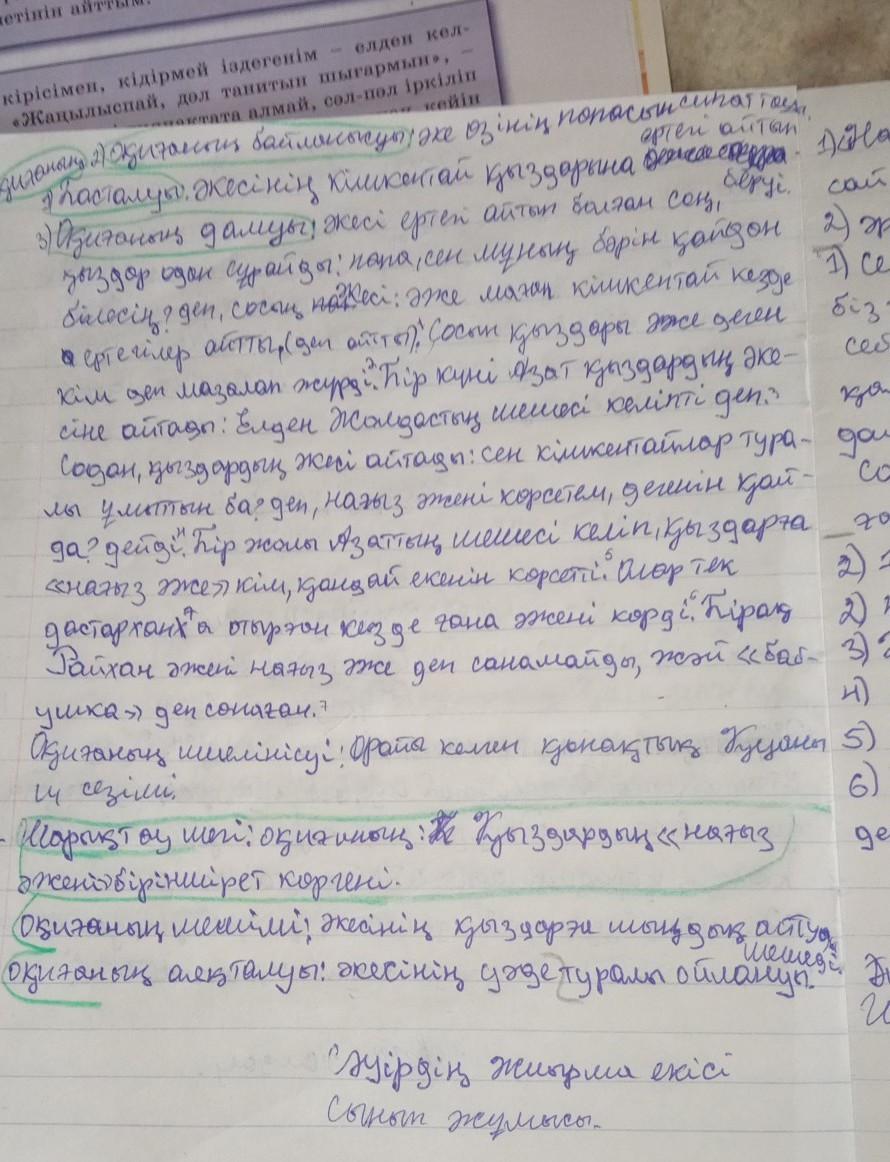 нетінін айттым.
кірісімен, кідірмей іздегенім – елден кел-
«Жаңылыспай, дөл танитын шығармын», –
алмай, сөл-пөл іркіліп
кейін
2) Оқиғаның байланысуы: әке өзінің папасын сипаттауы.
ертегі айтып
1) Басталуы: әкесінің кішкентай қыздарына
беруі.
3) Оқиғаның дамуы: әкесі ертегі айтып болған соң,
қыздар одан сұрайды: папа, сен мұның бәрін қайдан
білесің? деп, сосын әкесі: әже маған кішкентай кезде
ертегілер айтты, (деп айтты).¹ Сосын қыздары әже деген
кім деп мазалап жүрді.² Бір күні Азат қыздардың әке-
сіне айтады: Елден Жолдастың шешесі келіпті деп.³
Содан, қыздардың әкесі айтады: сен кішкентайлар тура-
лы ұмыттың ба? деп, нағыз әжені көрсетем, дегенің қай-
да? дейді.⁴ Бір жолы Азаттың шешесі келіп, қыздарға
«нағыз әже» кім, қандай екенін көрсетті.⁵ Олар тек
дастархан а отырған кезде ғана әжені көрді.⁶ Бірақ
Райхан әжені нағыз әже деп санамайды, жәй «баб-
ушка» деп санаған.⁷
Оқиғаның шиеленісуі: Орайға келген қонақтың
ш сезімі.
Шарықтау шегі: оқиғаның: Қыздардың «нағыз
әжені» бірінші рет көргені.
Оқиғаның шешімі: әкесінің қыздарға шындық айтуға
шешеді.
Оқиғаның аяқталуы: әкесінің уәде туралы ойлануы.
Сәуірдің жиырма екісі
Сынып жұмысы.
1) На
сай
2) әр
1) Се
біз
себ
қа
да
Со
ға
2)
2)
3)
4)
5)
6)
де